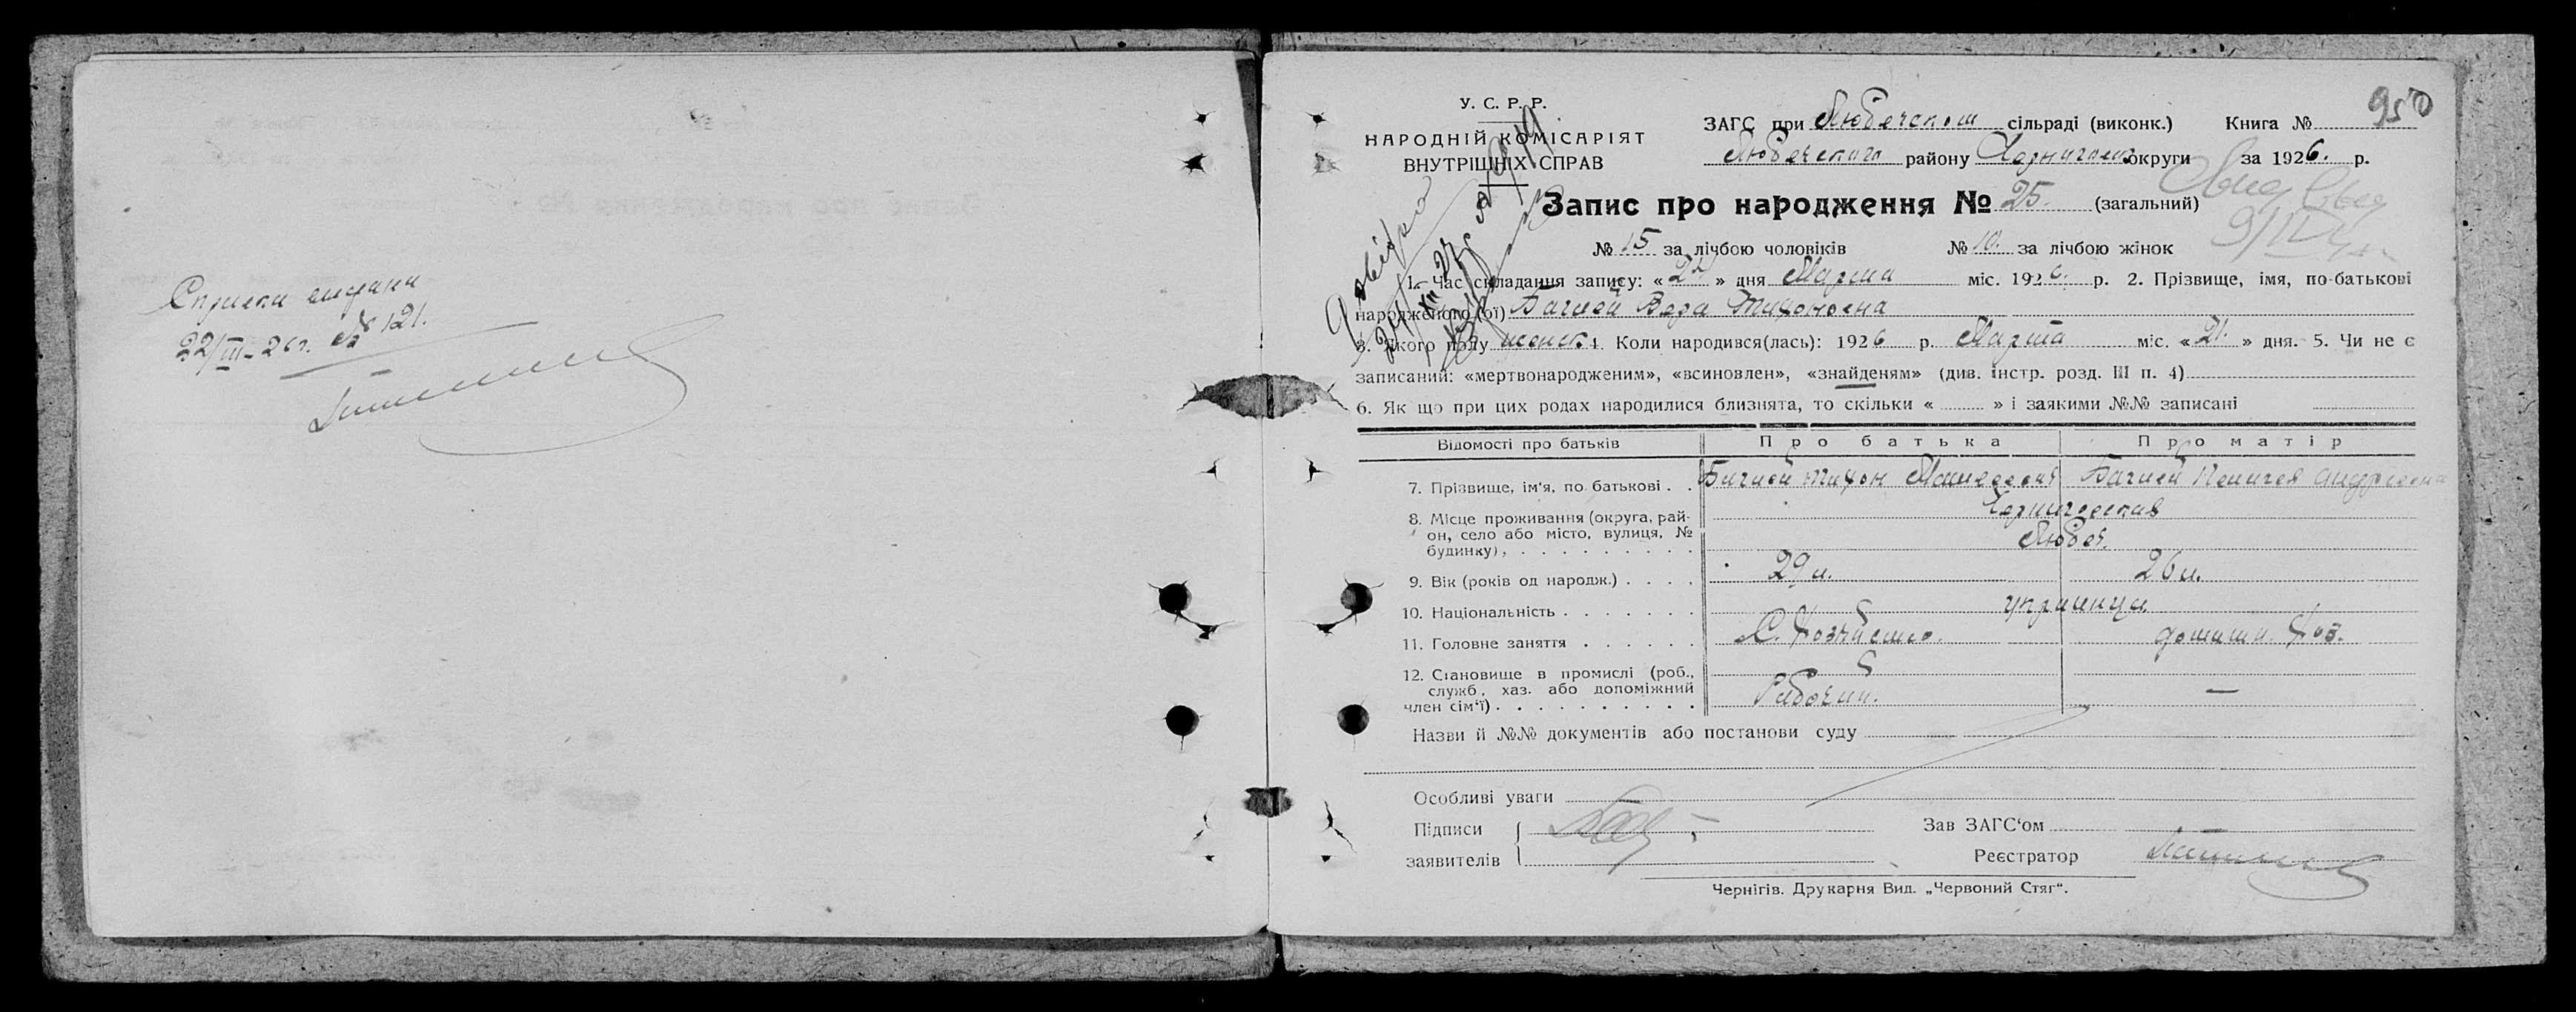 Справка выдана
22/III-26г. № 121.
950
У. С. Р. Р.
НАРОДНІЙ КОМІСАРІЯТ
ВНУТРІШНІХ СПРАВ
ЗАГС при Любечском сільраді (виконк.) Книга №
Любечского району округи за 1926. р.
Запис про народження № 25. (загальний)
№ 15 за лічбою чоловіків № 10. за лічбою жінок
1. Час складання запису: «22» дня Марта міс. 1926. р. 2. Прізвище, імя, по-батькові
народженого (ої) Вера Тихоновна
3. Якого полу женск. 4. Коли народився(лась): 1926 р. Марта міс. «21.» дня. 5. Чи не є
записаний: «мертвонародженим», «всиновлен», «знайденям» (див. інстр. розд. III п. 4)
6. Як що при цих родах народилися близнята, то скільки « » і заякими №№ записані
Відомості про батьків Про батька Про матір
7. Прізвище, ім'я, по батькові . . Тихон Андреевна
8. Місце проживання (округа, рай-
он, село або місто, вулиця, №
будинку), . . . . . . . . . Любеч.
9. Вік (років од народж.) . . . . 29 л. 26 л.
10. Національність . . . . . . . украинцы
11. Головне заняття . . . . . . С. Хозяйство. домашн. хоз.
12. Становище в промислі (роб.,
служб., хаз. або допоміжний
член сім'ї) . . . . . . . . . . Рабочий. —
Назви й №№ документів або постанови суду
Особливі уваги
Підписи
заявителів
Зав ЗАГС'ом
Реєстратор
Чернігів. Друкарня Вид. „Червоний Стяг“.